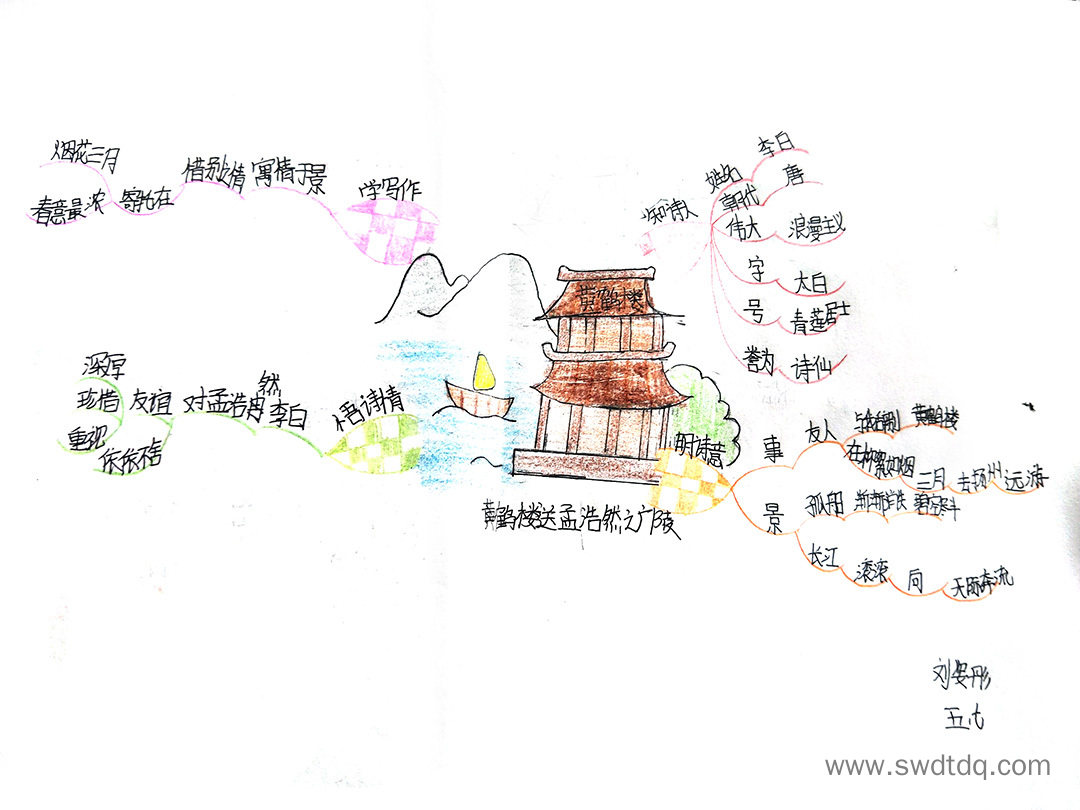 黄鹤楼
黄鹤楼送孟浩然之广陵
知诗人
姓名
李白
朝代
唐
伟大
浪漫主义
字
大白
号
青莲居士
誉为
诗仙
明诗意
事
友人
告别
黄鹤楼
在柳絮如烟
三月
去扬州
远游
景
孤舟
渐渐消失
碧空尽头
长江
滚滚
向
天际奔流
悟诗情
李白
然
对孟浩
友谊
深厚
珍惜
重视
依依不舍
学写作
寓情于景
惜别之情
寄托在
烟花三月
春意最浓
刘安彤
五.七
www.swdtdq.com